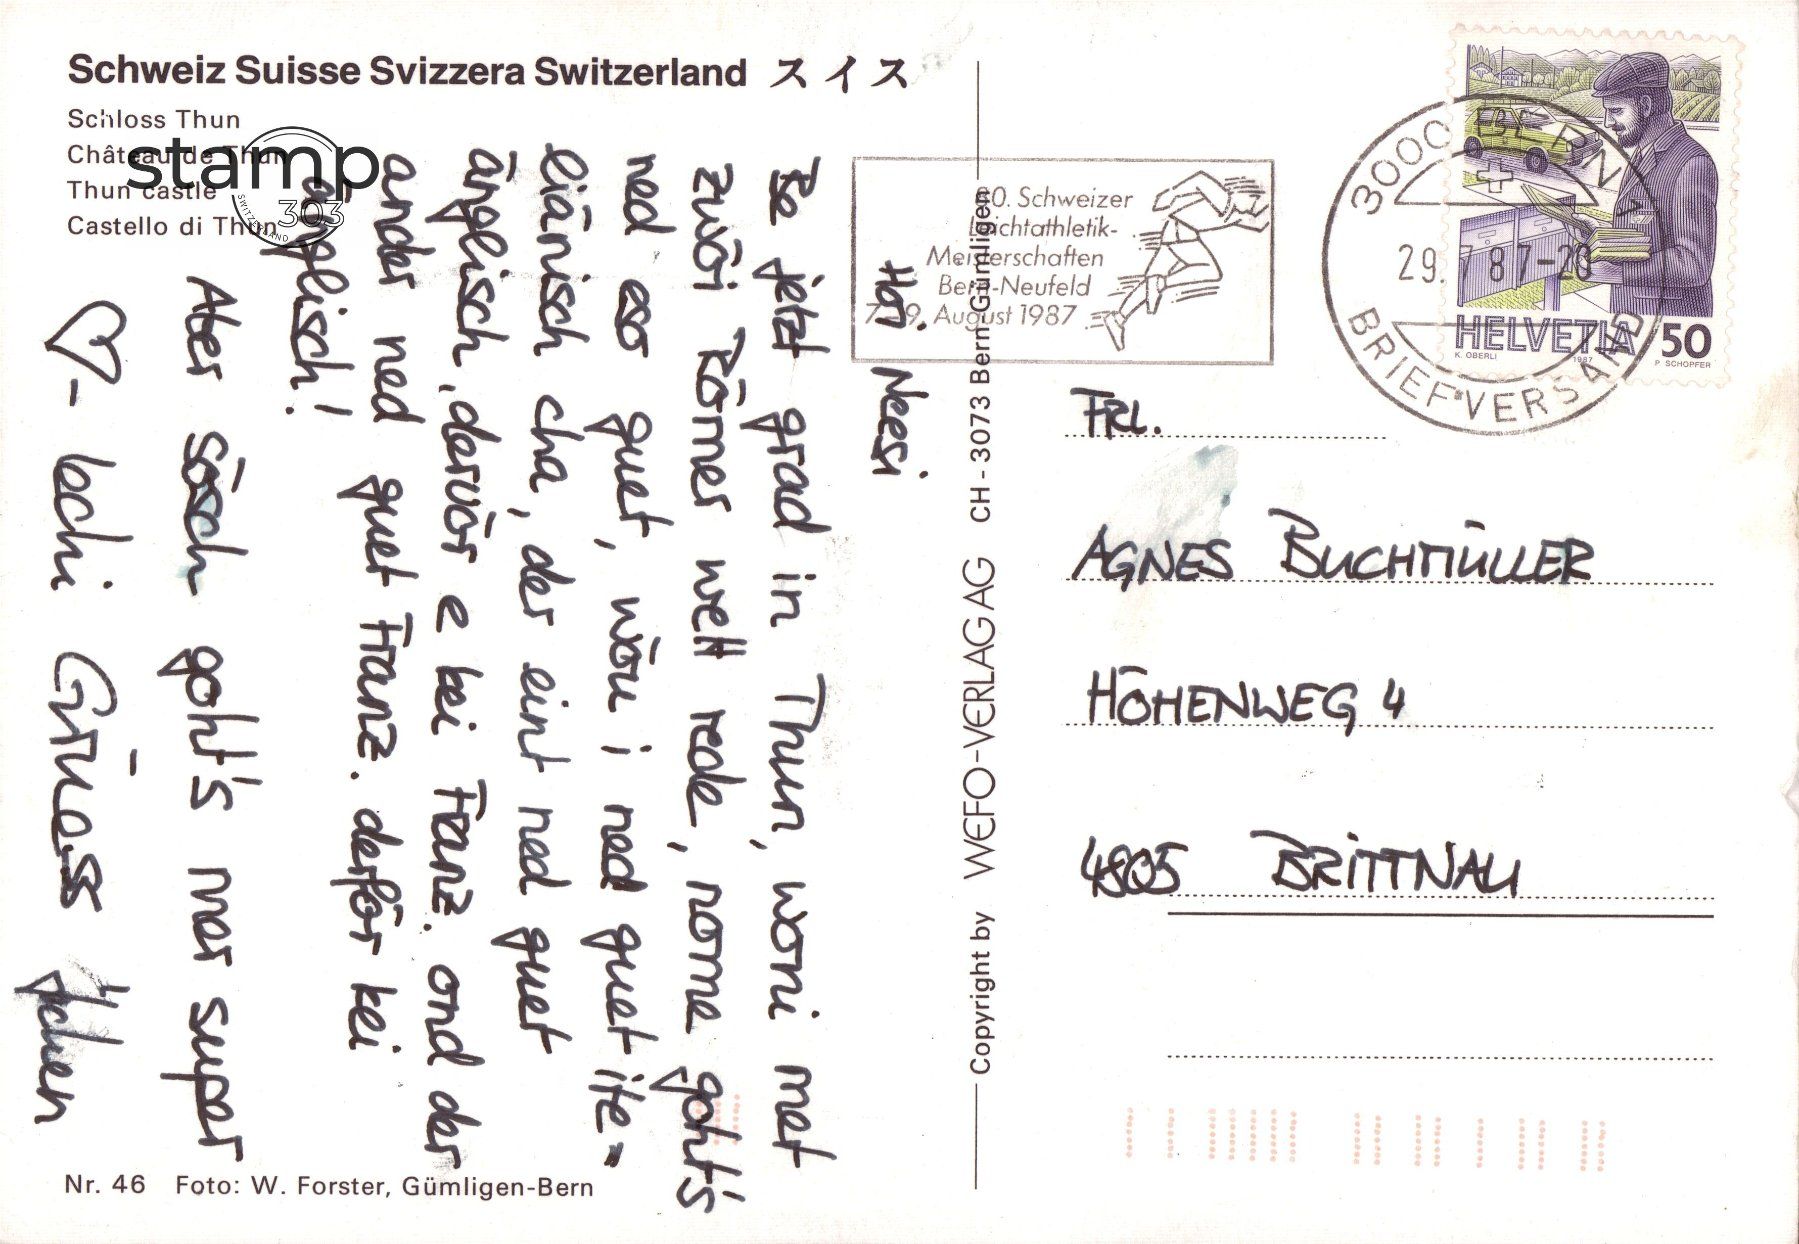 Schweiz Suisse Svizzera Switzerland スイス
Schloss Thun
Château de Thun
Thun castle
Castello di Thun
stamp
303
SWITZERLAND
Hoi Neesi
Be jetzt grad in Thun, woni met
zwöi Römer wett rede, nome goht's
ned eso guet, wöu i ned guet ite=
liänisch cha, der eint ned guet
änglisch, dervör e kei Franz. ond der
ander ned guet Franz. derför kei
änglisch!
Aber sösch goht's mer super
♡-lechi Grüess
Nr. 46 Foto: W. Forster, Gümligen-Bern
Copyright by WEFO-VERLAG AG CH - 3073 Bern-Gümligen
60. Schweizer
Leichtathletik-
Meisterschaften
Bern-Neufeld
7.-9. August 1987
3000 BERN 1
29.7.87-20
BRIEFVERSAND
HELVETIA 50
K. OBERLI 1987 P. SCHOPFER
FRL.
AGNES BUCHMÜLLER
HÖHENWEG 4
4805 BRITTNAU